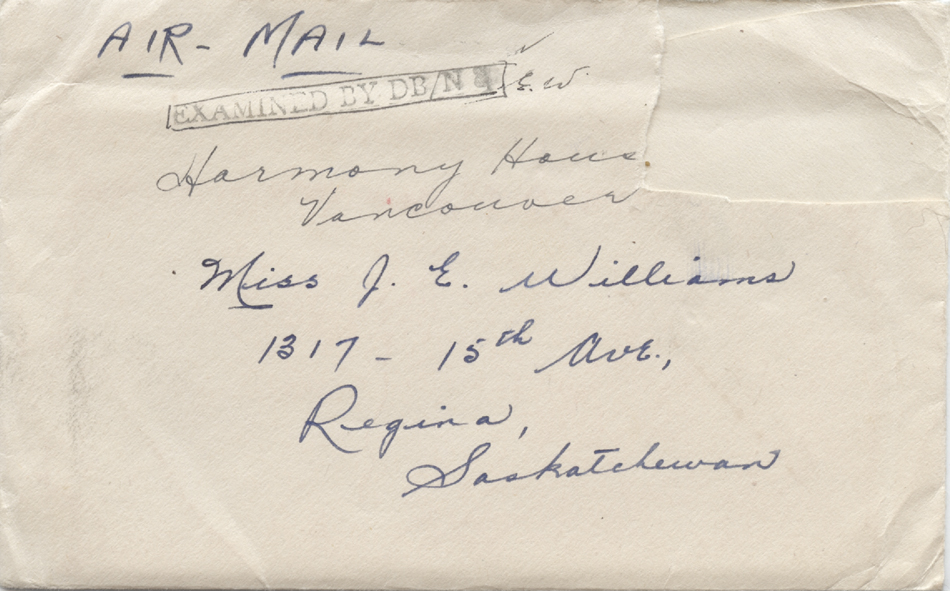 AIR- MAIL
EXAMINED BY DB/N
E.W.
Harmony House
Vancouver
Miss J. E. Williams
1317 - 15th Ave.,
Regina,
Saskatchewan